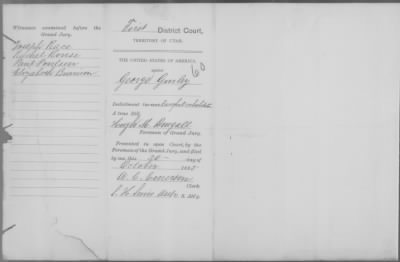 Witnesses examined before the
Grand Jury.
Joseph Race
Rachel Rouse
Paul Poulson
Elizabeth
First District Court,
TERRITORY OF UTAH.
THE UNITED STATES OF AMERICA
versus
George
60
Indictment for unlawful cohabitation
A true bill.
Hugh M. Dougall
Foreman of Grand Jury.
Presented in open Court, by the
Foreman of the Grand Jury, and filed
by me this 20 day of
October
A. C. Emerson
Clerk